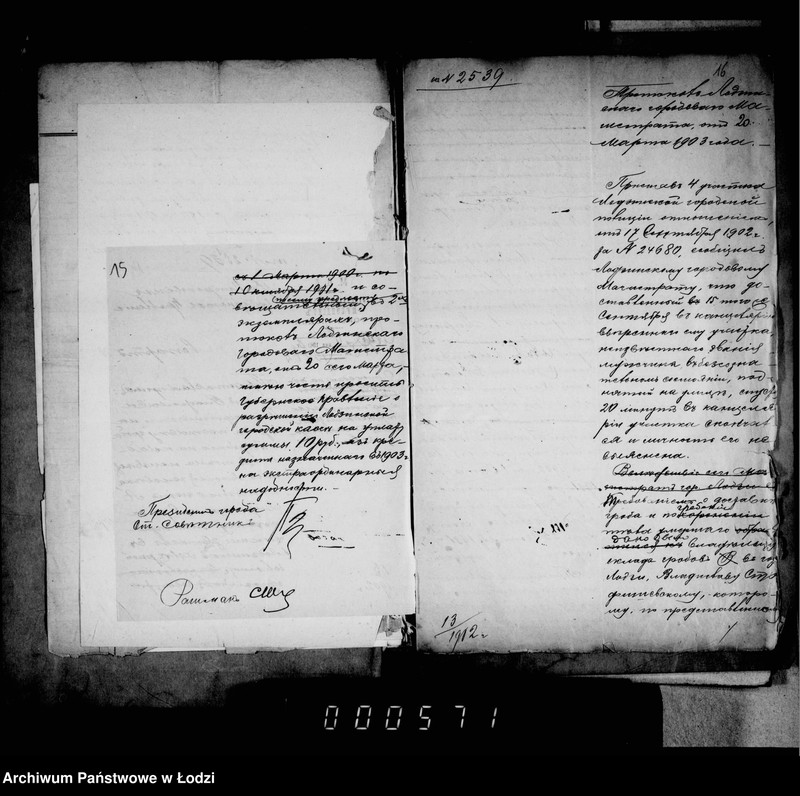 15
съ 1 Марта 1900 г. по
10 октября 1901 г. и со-
экземплярахъ, про-
токолъ Лодзинскаго
Городового Магистра-
та, отъ 20 сего Марта,
имѣю честь просить
Губернское Правленіе о
разрѣшеніи Лодзинской
городской кассѣ на уплату
суммы 10 руб., изъ кре-
дита назначеннаго въ 1903 г.
на экстраординарныя
надобности. —
Президентъ города
Ст. Совѣтникъ
за № 2539.
16
Протоколъ Лодзин-
скаго городового Ма-
гистрата, отъ 20
Марта 1903 года. —
Приставъ 4 участка
Лодзинской городской
полиціи отношеніемъ,
отъ 17 Сентября 1902 г.
за № 24680, сообщилъ
Лодзинскому городовому
Магистрату, что до-
ставленный въ 15 того же
Сентября въ канцелярію
ввѣреннаго ему участка
неизвѣстнаго званія
мужчина въ безсозна-
тельномъ состояніи, под-
нятый на улицѣ, спустя
20 минутъ въ канцеля-
ріи участка скончал-
ся и личность его не
выяснена.
гроба и
склада гробовъ въ гор.
Лодзи, Владиславу
кото-
му, по представленному
13/1912 г.
000571
Archiwum Państwowe w Łodzi